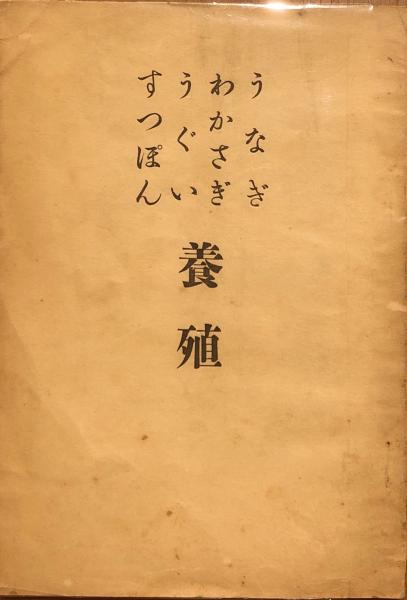 うなぎ
わかさぎ
うぐい
すつぽん
養殖